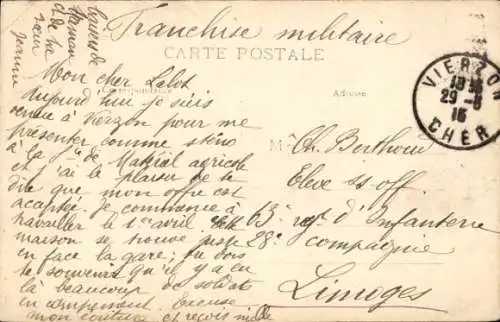 Franchise militaire
CARTE POSTALE
Correspondance
Adresse
VIERZON
29-3
15
CHER
Baisers de
Maman
et de ta
sœur
Jeanne
Mon cher Lalot
Aujourd'hui je suis
venue à Vierzon pour me
présenter comme sténo
à la Sté de Matériel agricole
et j'ai le plaisir de te
dire que mon offre est
acceptée. Je commence à
travailler le 1er avril. Cette
maison se trouve juste
en face la gare; tu dois
te souvenir qu'il y a eu
là beaucoup de soldats
en campement. Excuse
mon écriture et reçois mille
M
Ch. Berthoué
Elève ss off.
63e regt d'Infanterie
28e Compagnie
Limoges